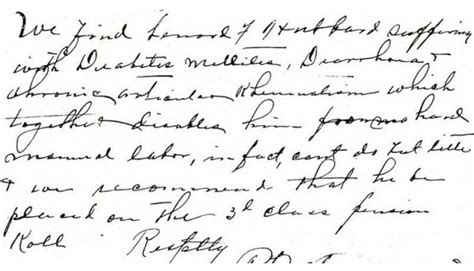 We find Lenard F Hubbard suffering
with Diabetes Mellities, Diarrhoea &
chronic articular Rheumatism which
together disables him from hard
manual labor, in fact, cant do but little
& we recommend that he be
placed on the 3d class pension
Roll Resptly